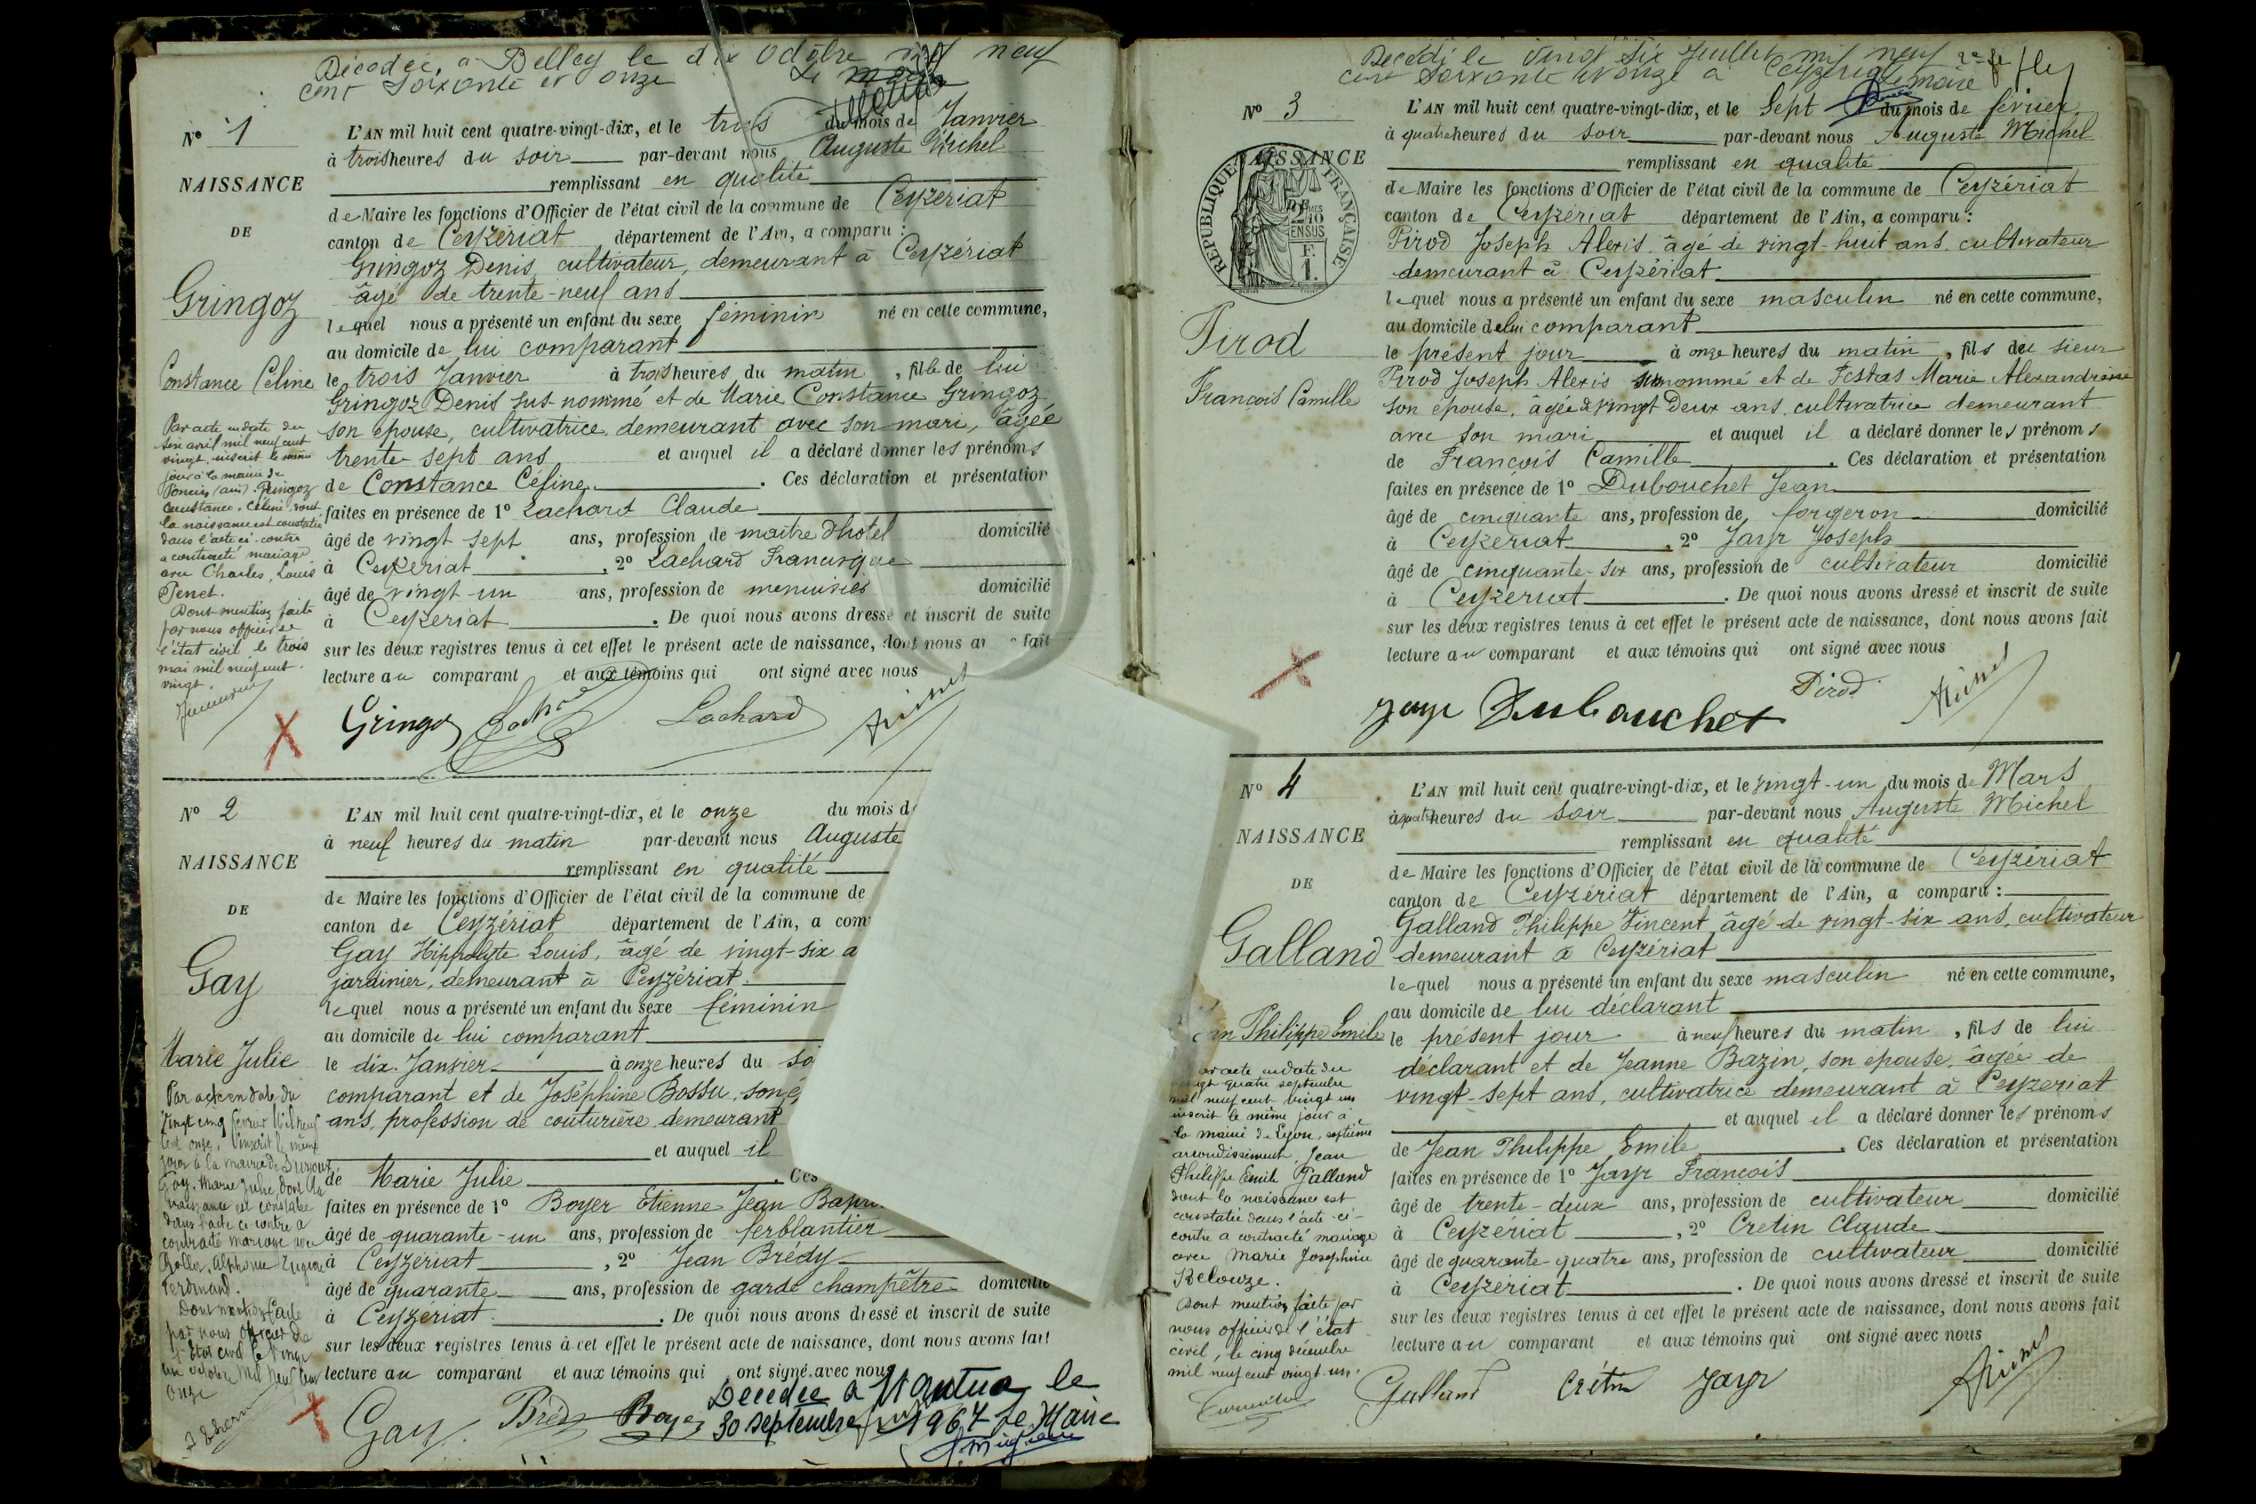 Décédée à Belley le dix octobre mil neuf
cent soixante et onze Le maire
N° 1
NAISSANCE
DE
Gringoz
Constance Céline
Par acte en date du
six avril mil neuf cent
vingt, inscrit le même
jour à la mairie de
Poncin (ain). Gringoz
Constance, Céline, dont
la naissance est constatée
dans l'acte ci-contre
a contracté mariage
avec Charles, Louis
Penet.
Dont mention faite
par nous officier de
l'état civil, le trois
mai mil neuf cent
vingt.
L'AN mil huit cent quatre-vingt-dix, et le trois du mois de Janvier
à trois heures du soir par-devant nous Auguste Michel
remplissant en qualité
de Maire les fonctions d'Officier de l'état civil de la commune de Ceyzériat
canton de Ceyzériat département de l'Ain, a comparu :
Gringoz Denis, cultivateur, demeurant à Ceyzériat
âgé de trente-neuf ans
lequel nous a présenté un enfant du sexe féminin né en cette commune,
au domicile de lui comparant
le trois Janvier à trois heures du matin, fille de lui
Gringoz Denis sus nommé et de Marie Constance Gringoz
son épouse, cultivatrice demeurant avec son mari, âgée
trente sept ans et auquel il a déclaré donner les prénoms
de Constance Céline. Ces déclaration et présentation
faites en présence de 1° Lachard Claude
âgé de vingt sept ans, profession de maître d'hotel domicilié
à Ceyzeriat, 2° Lachard Francisque
âgé de vingt-un ans, profession de menuisier domicilié
à Ceyzeriat. De quoi nous avons dressé et inscrit de suite
sur les deux registres tenus à cet effet le présent acte de naissance, dont nous av fait
lecture au comparant et aux témoins qui ont signé avec nous
Gringoz Lachard Lachard
N° 2
NAISSANCE
DE
Gay
Marie Julie
Par acte en date du
Vingt cinq février Mil neuf
cent onze, inscrit le même
jour à la mairie de
Gay, Marie Julie, dont la
naissance est constatée
dans l'acte ci contre a
contracté mariage avec
Alphonse Eugène
Ferdinand.
Dont mention faite
par nous officier de
l'Etat civil le vingt
un octobre Mil Neuf Cent
onze
L'AN mil huit cent quatre-vingt-dix, et le onze du mois d
à neuf heures du matin par-devant nous Auguste
remplissant en qualité
de Maire les fonctions d'Officier de l'état civil de la commune de
canton de Ceyzériat département de l'Ain, a com
Gay Hippolyte Louis, âgé de vingt-six a
jardinier, demeurant à Ceyzériat.
lequel nous a présenté un enfant du sexe féminin
au domicile de lui comparant
le dix Janvier à onze heures du so
comparant et de Joséphine Bossu, son é
ans, profession de couturière demeurant
et auquel il
de Marie Julie. Ces
faites en présence de 1° Boyer Etienne Jean Bap
âgé de quarante-un ans, profession de ferblantier
à Ceyzériat, 2° Jean Brédy
âgé de quarante ans, profession de garde champêtre domicilié
à Ceyzériat. De quoi nous avons dressé et inscrit de suite
sur les deux registres tenus à cet effet le présent acte de naissance, dont nous avons fait
lecture au comparant et aux témoins qui ont signé avec nous
Gay Brédy Boyer
Décédée à Nantua le
30 septembre 1967 Le Maire
Décédé le vingt six Juillet mil neuf
cent soixante et onze à Ceyzériat le maire
N° 3
NAISSANCE
DE
RÉPUBLIQUE FRANÇAISE
Pirod
François Camille
L'AN mil huit cent quatre-vingt-dix, et le sept du mois de février
à quatre heures du soir par-devant nous Auguste Michel
remplissant en qualité
de Maire les fonctions d'Officier de l'état civil de la commune de Ceyzériat
canton de Ceyzériat département de l'Ain, a comparu :
Pirod Joseph Alexis âgé de vingt-huit ans cultivateur
demeurant à Ceyzériat
lequel nous a présenté un enfant du sexe masculin né en cette commune,
au domicile de lui comparant
le présent jour à onze heures du matin, fils du sieur
Pirod Joseph Alexis susnommé et de Festas Marie Alexandrine
son épouse, âgée de vingt deux ans cultivatrice demeurant
avec son mari et auquel il a déclaré donner les prénoms
de François Camille. Ces déclaration et présentation
faites en présence de 1° Dubouchet Jean
âgé de cinquante ans, profession de forgeron domicilié
à Ceyzeriat, 2° Jayr Joseph
âgé de cinquante-six ans, profession de cultivateur domicilié
à Ceyzeriat. De quoi nous avons dressé et inscrit de suite
sur les deux registres tenus à cet effet le présent acte de naissance, dont nous avons fait
lecture au comparant et aux témoins qui ont signé avec nous
Jayr Dubouchet Pirod
N° 4
NAISSANCE
DE
Galland
an Philippe Emile
ar acte en date du
vingt quatre septembre
mil neuf cent vingt un
inscrit le même jour à
la mairie de Lyon, septième
arrondissement, Jean
Philippe Emile Galland
dont la naissance est
constatée dans l'acte ci-
contre a contracté mariage
avec Marie Josephine
Kelouze.
Dont mention faite par
nous officier de l'état
civil, le cinq décembre
mil neuf cent vingt un.
L'AN mil huit cent quatre-vingt-dix, et le vingt-un du mois de Mars
à quatre heures du soir par-devant nous Auguste Michel
remplissant en qualité
de Maire les fonctions d'Officier de l'état civil de la commune de Ceyzériat
canton de Ceyzériat département de l'Ain, a comparu :
Galland Philippe Vincent âgé de vingt-six ans, cultivateur
demeurant à Ceyzériat
lequel nous a présenté un enfant du sexe masculin né en cette commune,
au domicile de lui déclarant
le présent jour à neuf heures du matin, fils de lui
déclarant et de Jeanne Bazin, son épouse, âgée de
vingt-sept ans, cultivatrice demeurant à Ceyzeriat
et auquel il a déclaré donner les prénoms
de Jean Philippe Emile. Ces déclaration et présentation
faites en présence de 1° Jayr François
âgé de trente-deux ans, profession de cultivateur domicilié
à Ceyzériat, 2° Cretin Claude
âgé de quarante-quatre ans, profession de cultivateur domicilié
à Ceyzériat. De quoi nous avons dressé et inscrit de suite
sur les deux registres tenus à cet effet le présent acte de naissance, dont nous avons fait
lecture au comparant et aux témoins qui ont signé avec nous
Galland Crétin Jayr